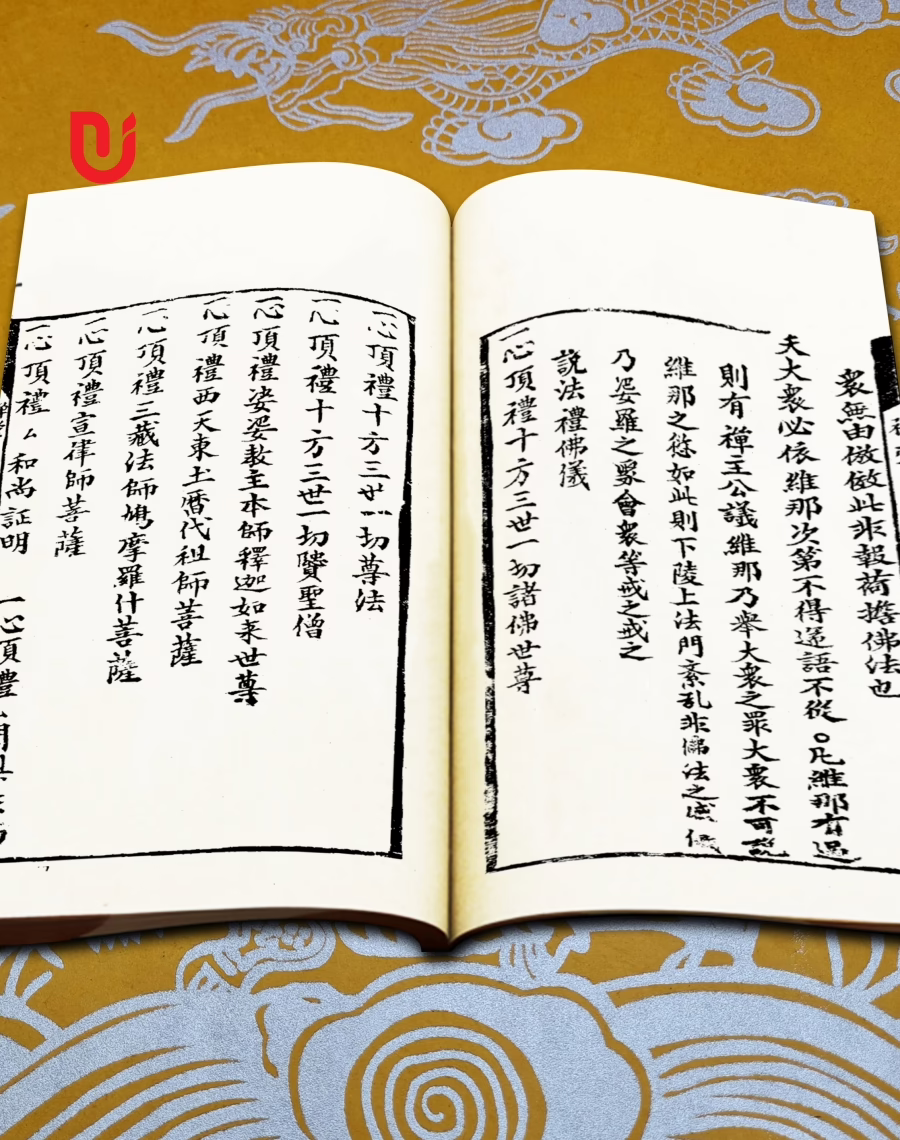 衆無由倣傚此非報荷擔佛法也
夫大衆必依維那次第不得逆語不從○凡維那有過
則有禅主公議維那乃舉大衆之罪大衆不可說
維那之愆如此則下陵上法門紊乱非佛法之威儀
乃娑羅之衆會衆等戒之戒之
説法禮佛儀
一心頂禮十方三世一切諸佛世尊
一心頂禮十方三世一切尊法
一心頂禮十方三世一切賢聖僧
一心頂禮娑婆教主本師釋迦如来世尊
一心頂禮西天東土暦代祖師菩薩
一心頂禮三藏法師鳩摩羅什菩薩
一心頂禮宣律師菩薩
一心頂禮ム和尚証明 一心頂禮